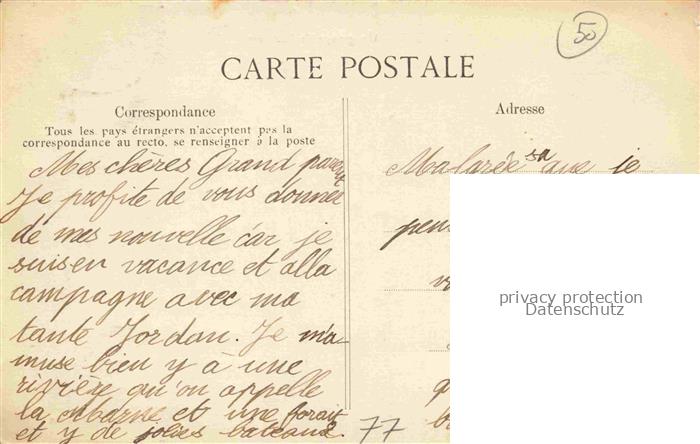 50
CARTE POSTALE
Correspondance
Tous les pays étrangers n'acceptent pas la
correspondance au recto, se renseigner à la poste
Mes chères Grand parent
Je profite de vous donner
de mes nouvelle car je
suis en vacance et alla
campagne avec ma
tante Jordan. Je m'a
muse bien y à une
rivière qu'on appelle
la Marne et une forait
et y de jolies bateaux.
77
Adresse
sa que je
privacy protection
Datenschutz